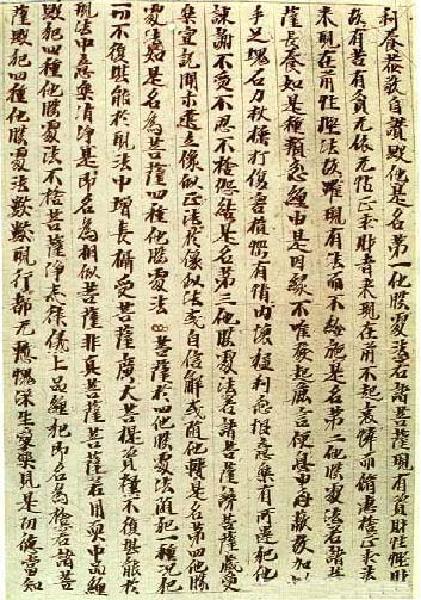 利養恭敬自讚毀他是名第一他勝處法若諸菩薩現有資財性慳財
故有苦有貧无依无怙正求財者来現在前不起哀憐而脩惠捨正求法者
来現在前性慳法故雖現有法而不給施是名第二他勝處法若諸菩
薩長養如是種類忿纏由是因緣不唯發起麁言便息由忿蔽故加以
手足塊石刀杖捶打傷害損惱有情内懷猛利忿恨意樂有所違犯他
諫謝不受不忍不捨怨結是名第三他勝處法若諸菩薩謗菩薩藏愛
樂宣說開示建立像似正法於像似法或自信解或隨他轉是名第四他勝
處法如是名為菩薩四種他勝處法 菩薩於四他勝處法隨犯一種況犯
一切不復堪能於現法中增長攝受菩薩廣大菩提資糧不復堪能於
現法中意樂清淨是即名為相似菩薩非真菩薩菩薩若用耎中品纏
毀犯四種他勝處法不捨菩薩淨戒律儀上品纏犯即名為捨若諸菩
薩毀犯四種他勝處法數數現行都无慚愧深生愛樂見是功德當知